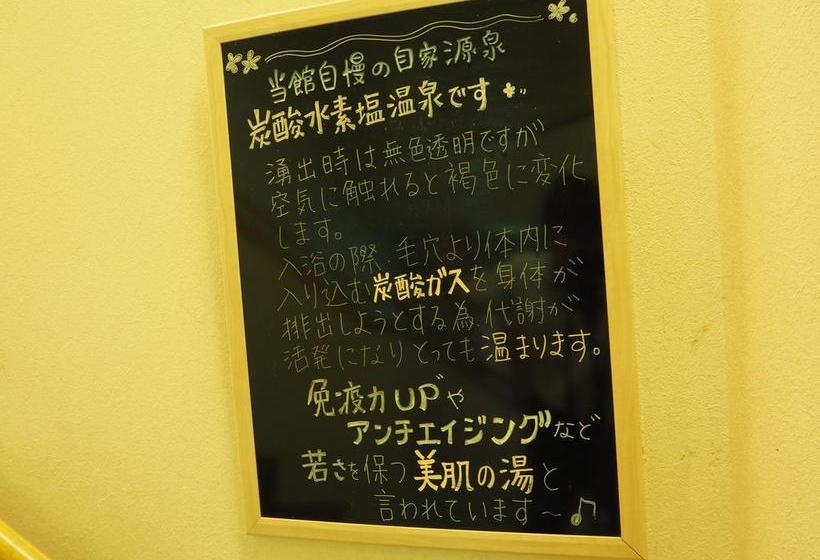 当館自慢の自家源泉
炭酸水素塩温泉です
湧出時は無色透明ですが
空気に触れると褐色に変化
します。
入浴の際、毛穴より体内に
入り込む炭酸ガスを身体が
排出しようとする為、代謝が
活発になりとっても温まります。
免疫力UPや
アンチエイジングなど
若さを保つ美肌の湯と
言われています〜♫